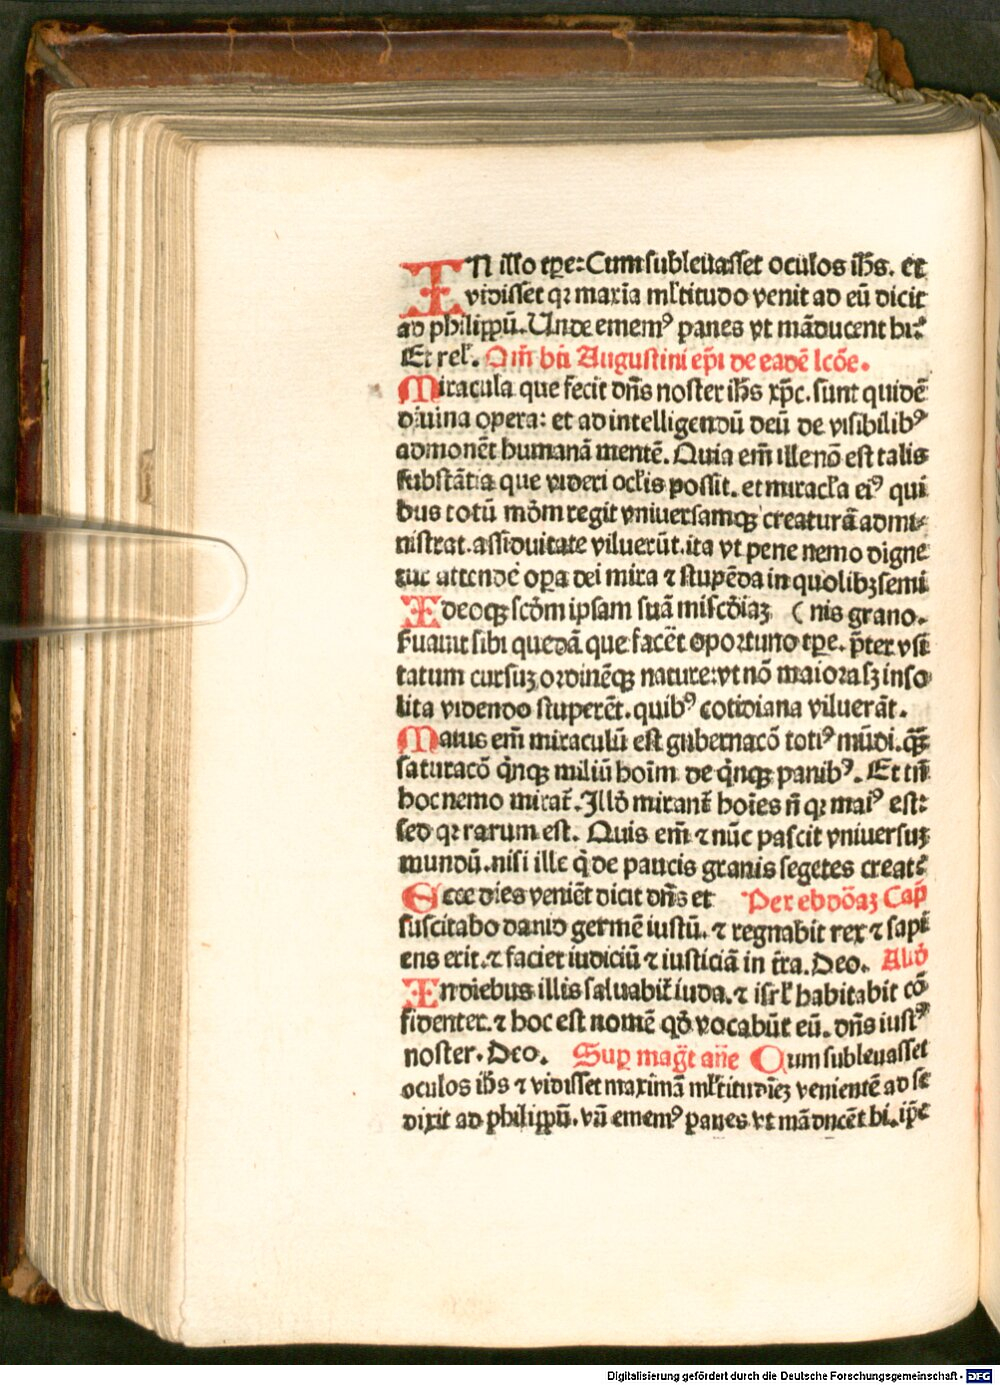 IN illo tꝑe: Cum subleuasset oculos ih̄s. et
vidisset qꝛ maxīa mĺtitudo venit ad eū dicit
ad philippū. Unde ememꝰ panes vt māducent hi?
Et rel̄. Om̄ bt̄i Augustini ep̄i de eadē lcōe.
Miracula que fecit dn̄s noster ih̄s xp̄c. sunt quidē
diuina opera: et ad intelligendū deū de visibilibꝰ
admonēt humanā mentē. Quia em̄ ille nō est talis
substātia que videri ocĺis possit. et miracĺa eiꝰ qui
bus totū mōm regit vniuersamqꝫ creaturā admi⸗
nistrat. assiduitate viluerūt. ita vt pene nemo digne
tur attendē oꝑa dei mira ⁊ stupēda in quolibꝫ semi
Ideoqꝫ scd̄m ipsam suā mīscd̄iaꝫ ( nis grano.
ẜuauit sibi quedā que facēt oportuno tꝑe. p̄ter vsi
tatum cursuꝫ ordinēqꝫ nature: vt nō maiora sꝫ inso
lita videndo stuperēt. quibꝰ cotidiana viluerāt.
Maius em̄ miraculū est gubernacō totiꝰ mūdi. qꝫ̄
saturacō qͥnqꝫ miliū hoīm de qͥnqꝫ panibꝰ. Et tn̄
hoc nemo mirat᷑. Illd̄ mirant᷑ hoīes n̄ qꝛ maiꝰ est:
sed qꝛ rarum est. Quis em̄ ⁊ nūc pascit vniuersuꝫ
mundū. nisi ille qͥ de paucis granis segetes creat?
Ecce dies veniēt dicit dn̄s et Per ebdōaꝫ Cap̄
suscitabo dauid germē iustū. ⁊ regnabit rex ⁊ sapi
ens erit. ⁊ faciet iudiciū ⁊ iusticiā in t̄ra. Deo. Aliud̄
In diebus illis saluabit᷑ iuda. ⁊ isrĺ habitabit cō
fidenter. ⁊ hoc est nomē qd̄ vocabūt eū. dn̄s iustꝰ
noster. Deo. Suꝑ magt̄ an̄e Cum subleuasset
oculos ih̄s ⁊ vidisset maximā mĺtitudieꝫ venientē ad se
dixit ad philippū. vn̄ ememꝰ panes vt māducēt hi. ip̄e
Digitalisierung gefördert durch die Deutsche Forschungsgemeinschaft - DFG